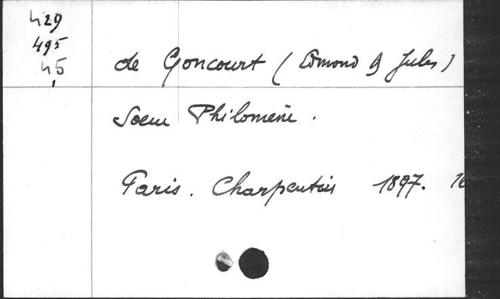 429
495
45
de Goncourt (Edmond & Jules)
Soeur Philomène.
Paris. Charpentier 1897. 16